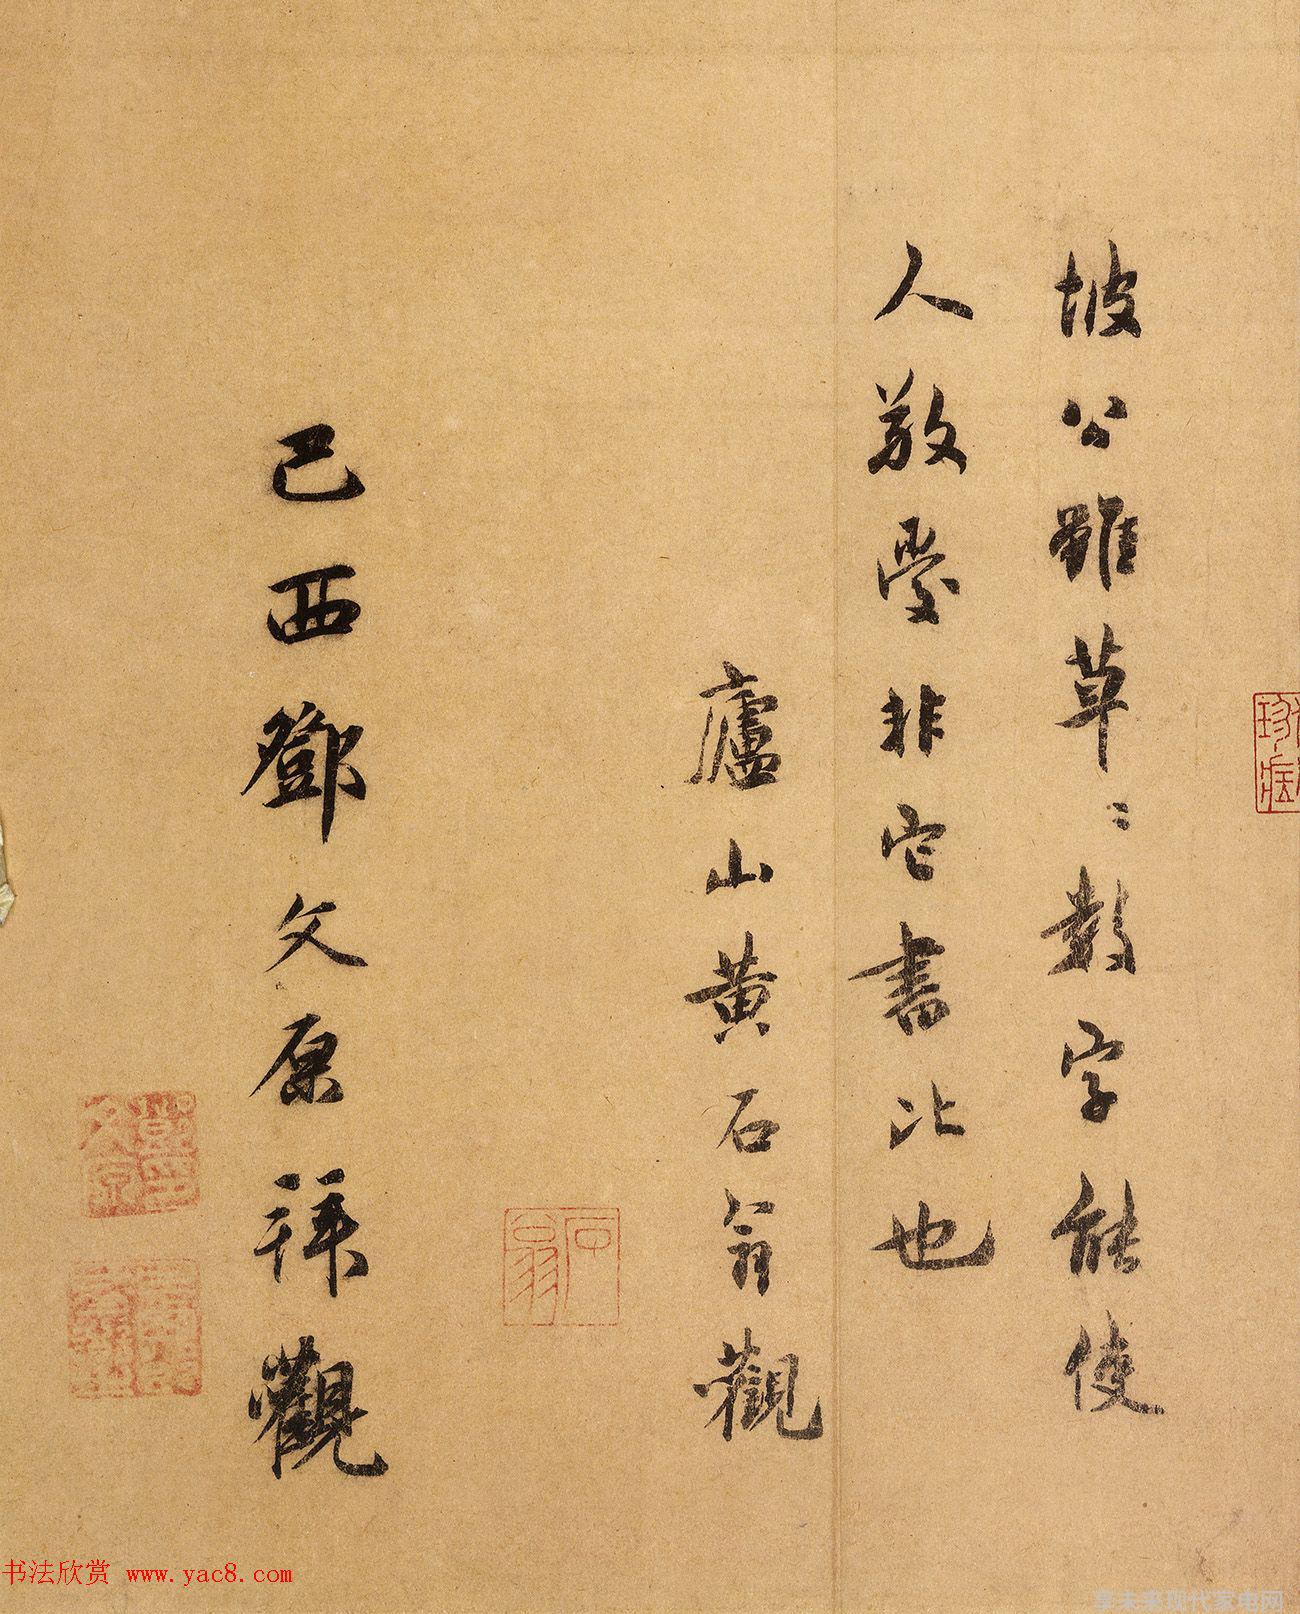 坡公雖草〻數字能使
人敬愛非它書比也
廬山黃石翁觀
石翁
己酉鄧文原拜觀
书法欣赏 www.yac8.com